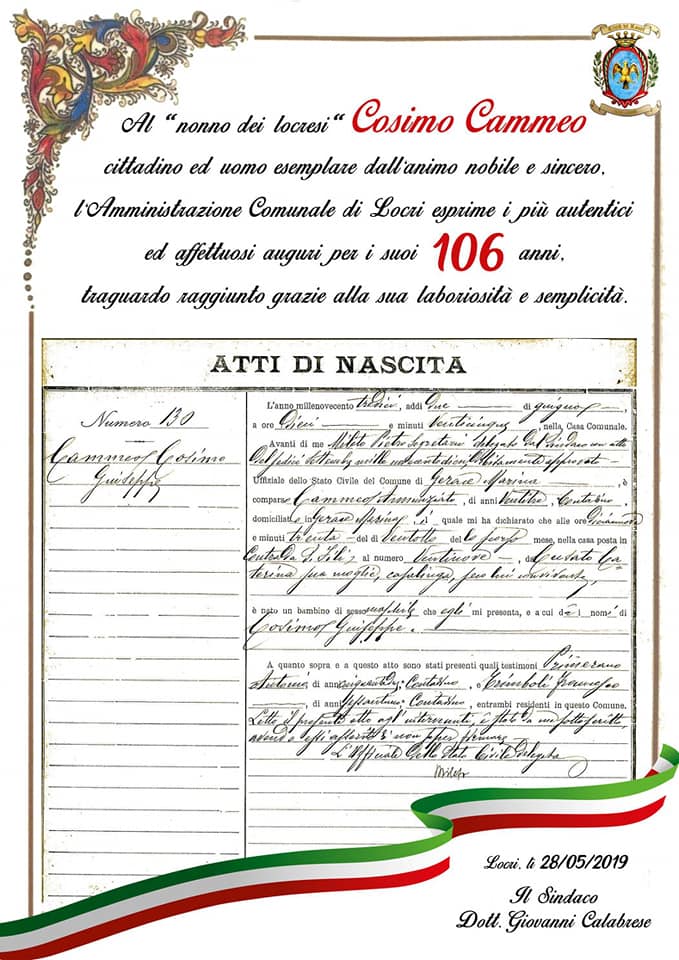 Al "nonno dei locresi" Cosimo Cammeo
cittadino ed uomo esemplare dall'animo nobile e sincero,
l'Amministrazione Comunale di Locri esprime i più autentici
ed affettuosi auguri per i suoi 106 anni,
traguardo raggiunto grazie alla sua laboriosità e semplicità.
ATTI DI NASCITA
Numero 130
Cammeo Cosimo
Giuseppe
L'anno millenovecento tredici, addì due di giugno,
a ore dieci e minuti venticinque, nella Casa Comunale.
Avanti di me Milito Pietro Segretario delegato dal Sindaco con atto
Uffiziale dello Stato Civile del Comune di Gerace Marina, è
comparso Cammeo Annunziato, di anni ventitre, contadino,
domiciliato in Gerace Marina, il quale mi ha dichiarato che alle ore diciannove
e minuti trenta del dì ventotto del p. passato mese, nella casa posta in
Contrada al numero ventinove, da Cusato Ca-
terina sua moglie, casalinga, seco lui convivente,
è nato un bambino di sesso maschile che egli mi presenta, e a cui dà i nomi di
Cosimo Giuseppe.
A quanto sopra e a questo atto sono stati presenti quali testimoni Primerano
Antonio, di anni contadino, e Trimboli Francesco
, di anni sessantuno, contadino, entrambi residenti in questo Comune.
Letto il presente atto agli intervenuti, è stato da me sottoscritto,
avendo essi asserito di non saper firmare
L'Ufficiale dello Stato Civile delegato
Milito
Locri, lì 28/05/2019
Il Sindaco
Dott. Giovanni Calabrese